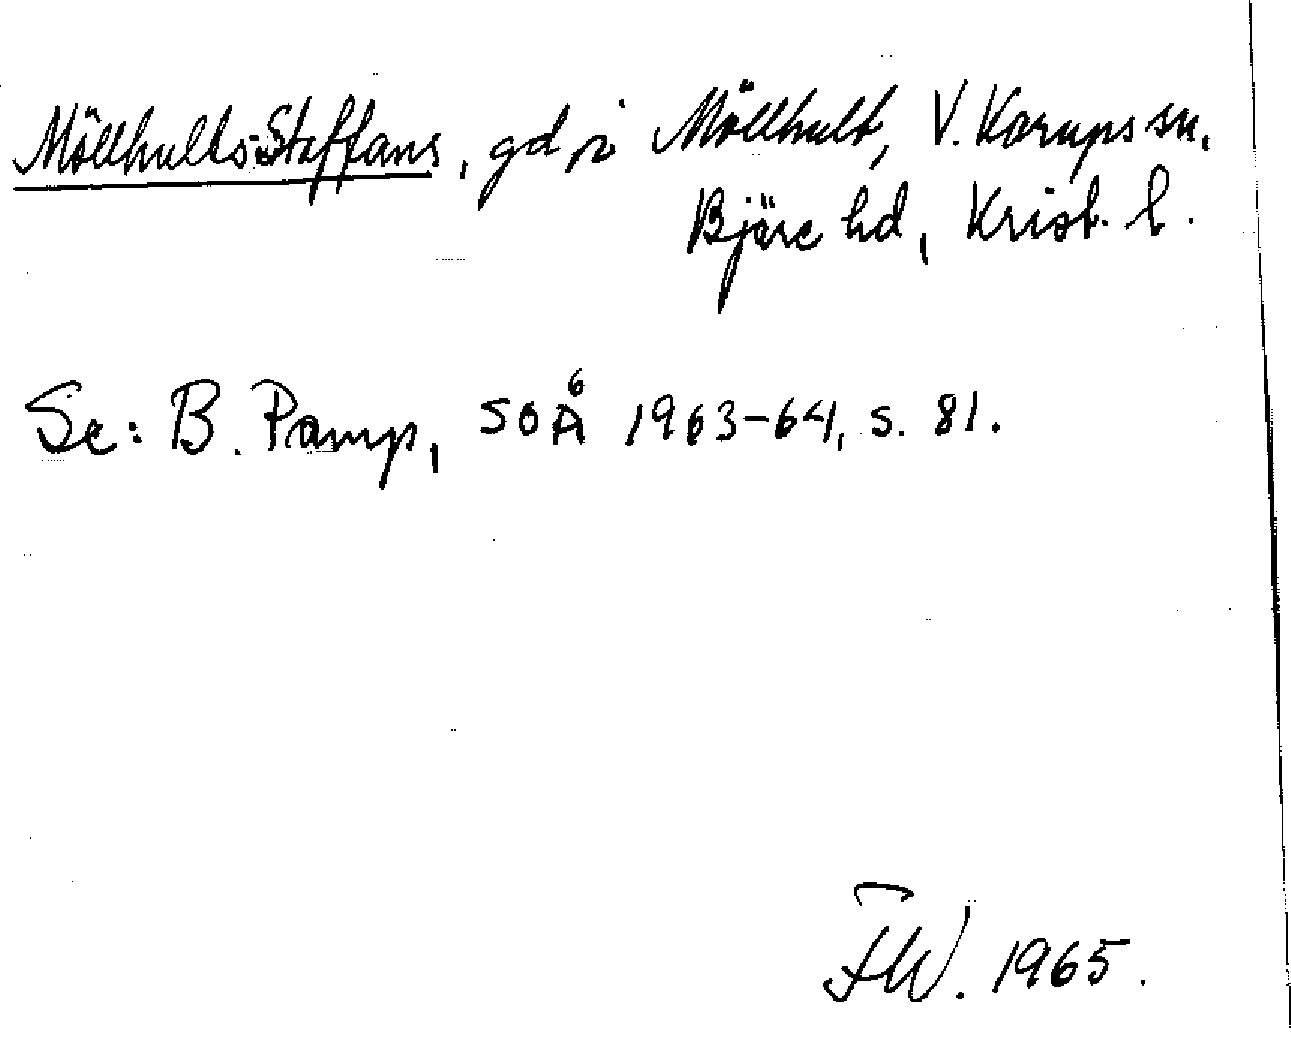 Möllhults-Staffans, gd i Möllhult, V. Karups sn,
Bjäre hd, Krist. l.
Se: B. Pamp, SOÅ 1963-64, s. 81.
FW. 1965.